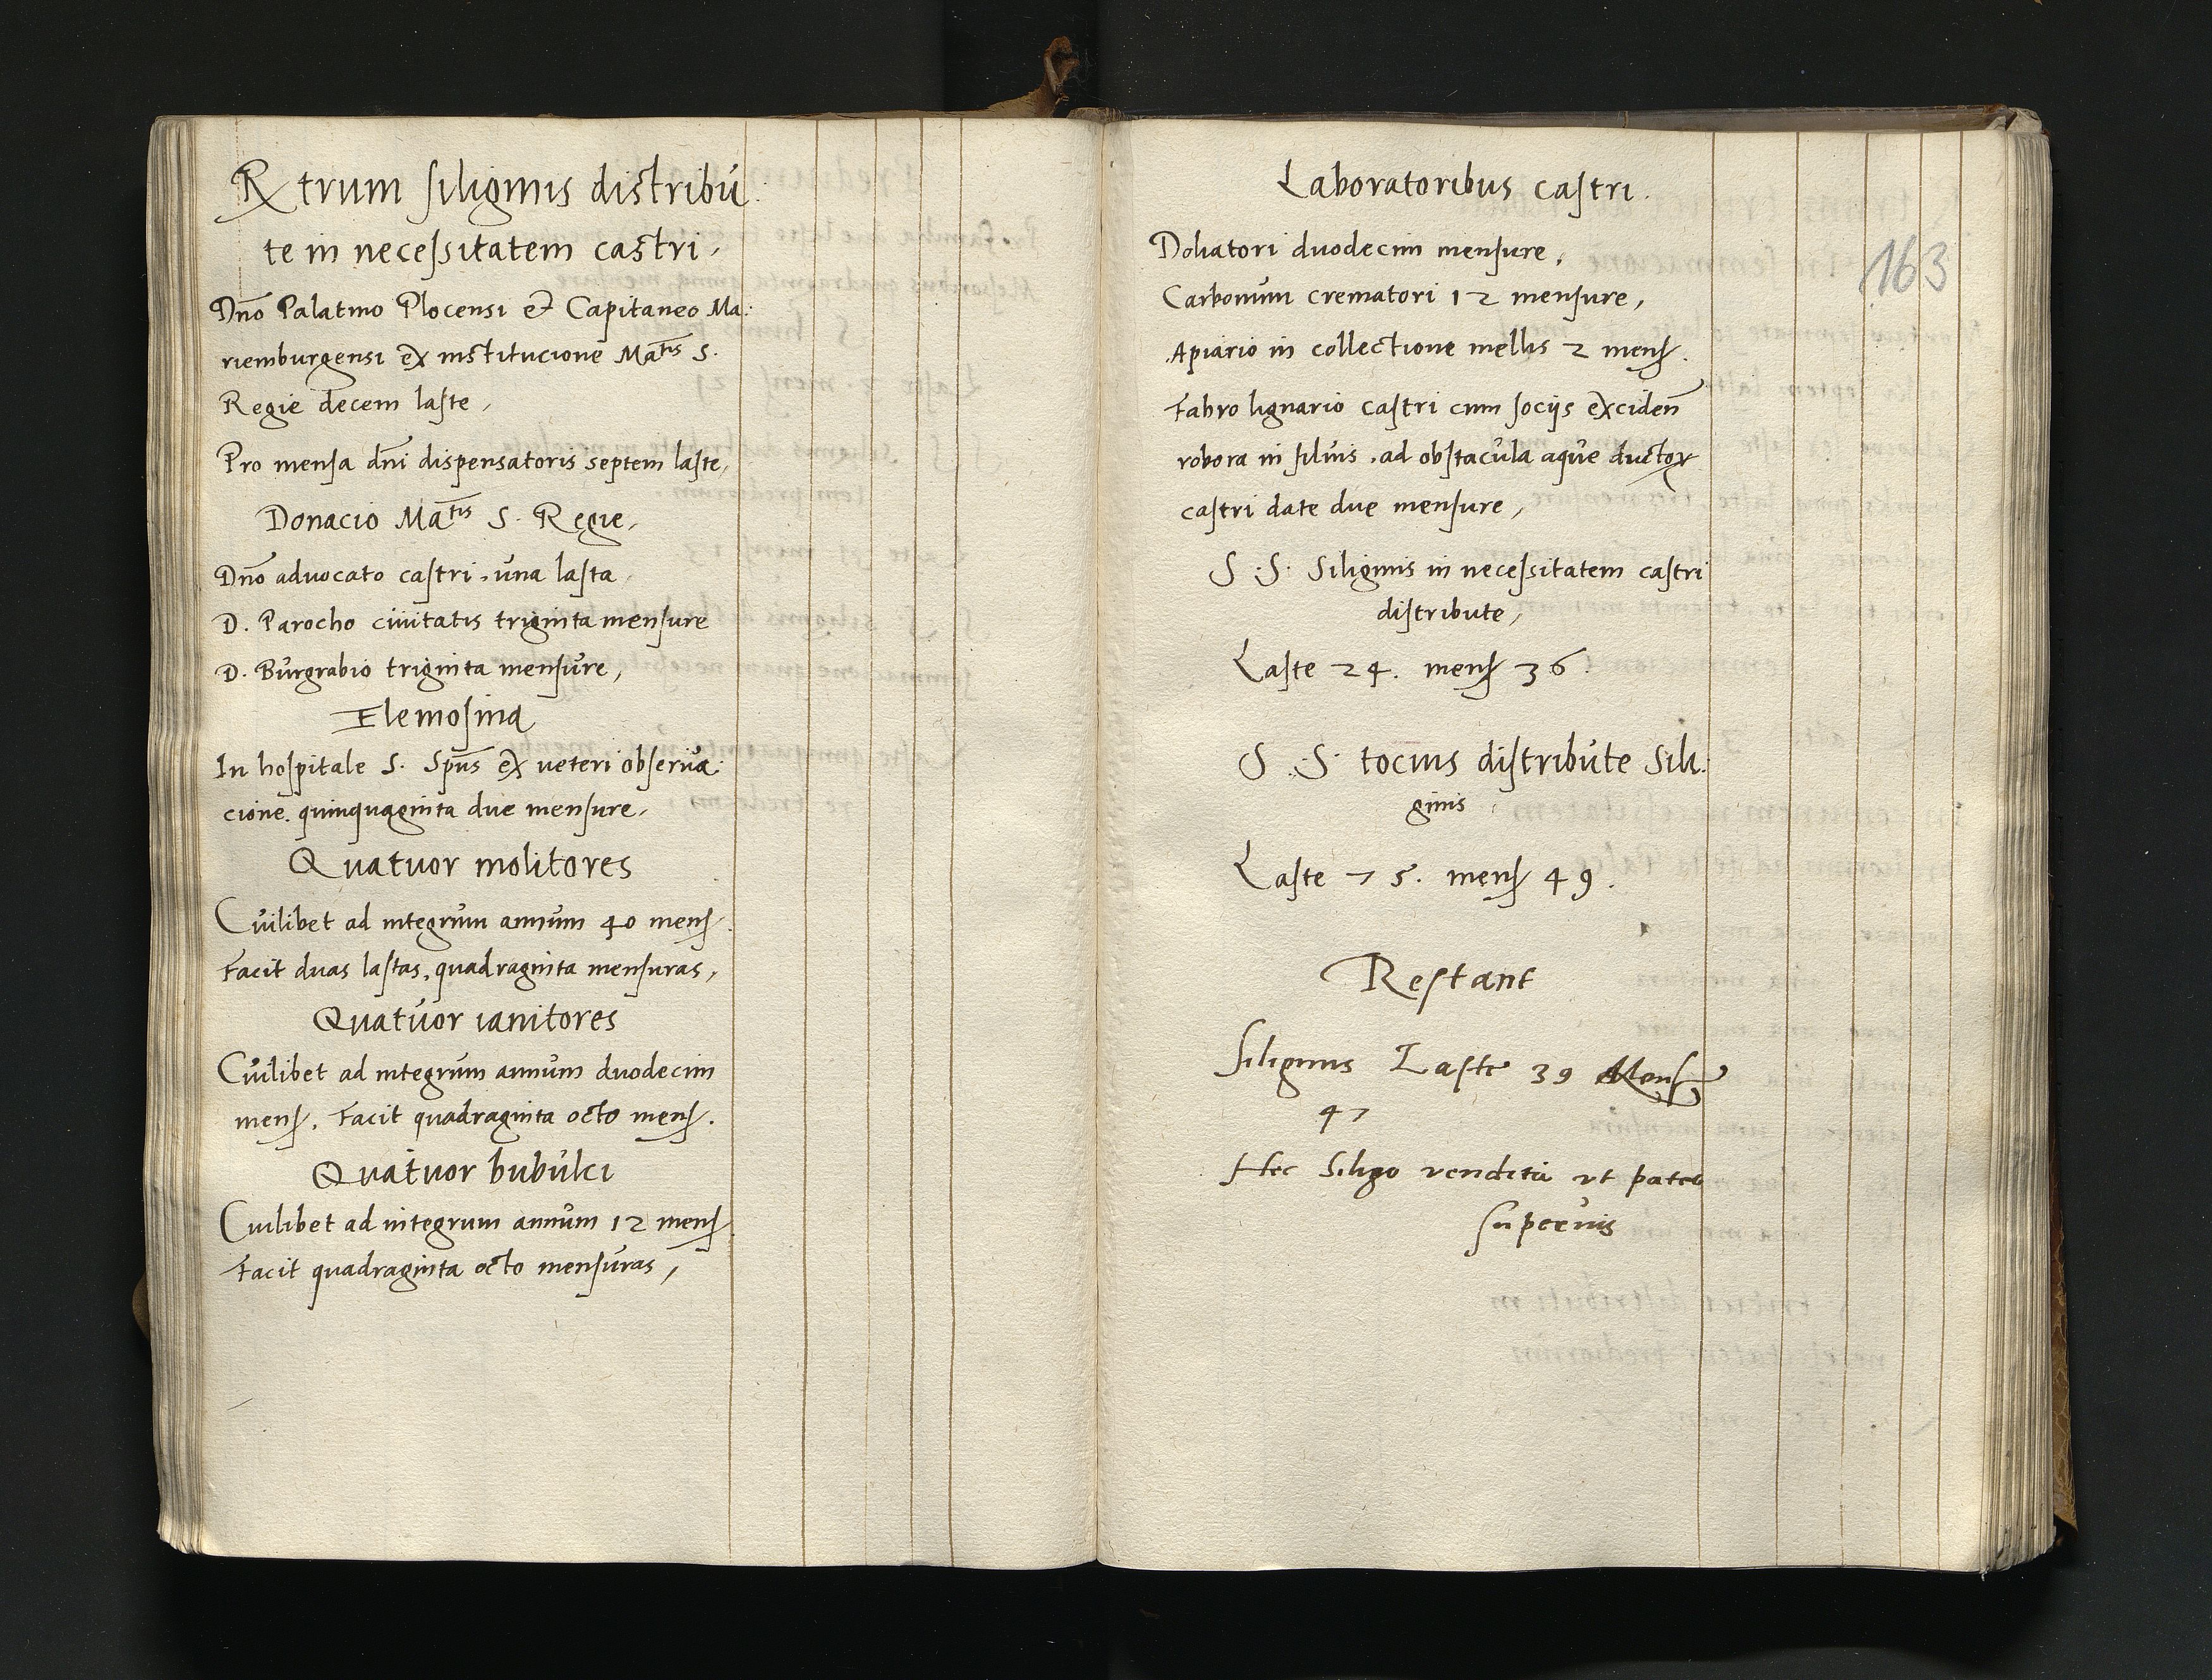 Rtrum siliginis distribu
te in necessitatem castri,
Dno Palatino Plocensi et Capitaneo Ma:
riemburgensi ex institucione Matis S.
Regie decem laste,
Pro mensa dni dispensatoris septem laste,
Donacio Matis S. Regie,
Dno advocato castri, una lasta
D. Parocho civitatis triginta mensure
D. Burgrabio triginta mensure,
Elemosina
In hospitale S. Spus ex veteri observa:
cione. quinquaginta due mensure,
Quatuor molitores
Cuilibet ad integrum annum 40 mens.
Facit duas lastas, quadraginta mensuras,
Quatuor ianitores
Cuilibet ad integrum annum duodecim
mens. Facit quadraginta octo mens.
Quatuor bubulci
Cuilibet ad integrum annum 12 mens.
Facit quadraginta octo mensuras,
Laboratoribus castri.
163
Doliatori duodecim mensure,
Carbonum crematori 12 mensure,
Apiario in collectione mellis 2 mens.
Fabro lignario castri cum socijs exciden
robora in silvis, ad obstacula aque ductoꝝ
castri date due mensure,
S. S. Siliginis in necessitatem castri
distribute,
Laste 24. mens 36.
S. S. tocius distribute Sili:
ginis
Laste 75. mens 49.
Restant
Siliginis Laste 39 Mens
47
Hec Siligo vendita ut patet
superius